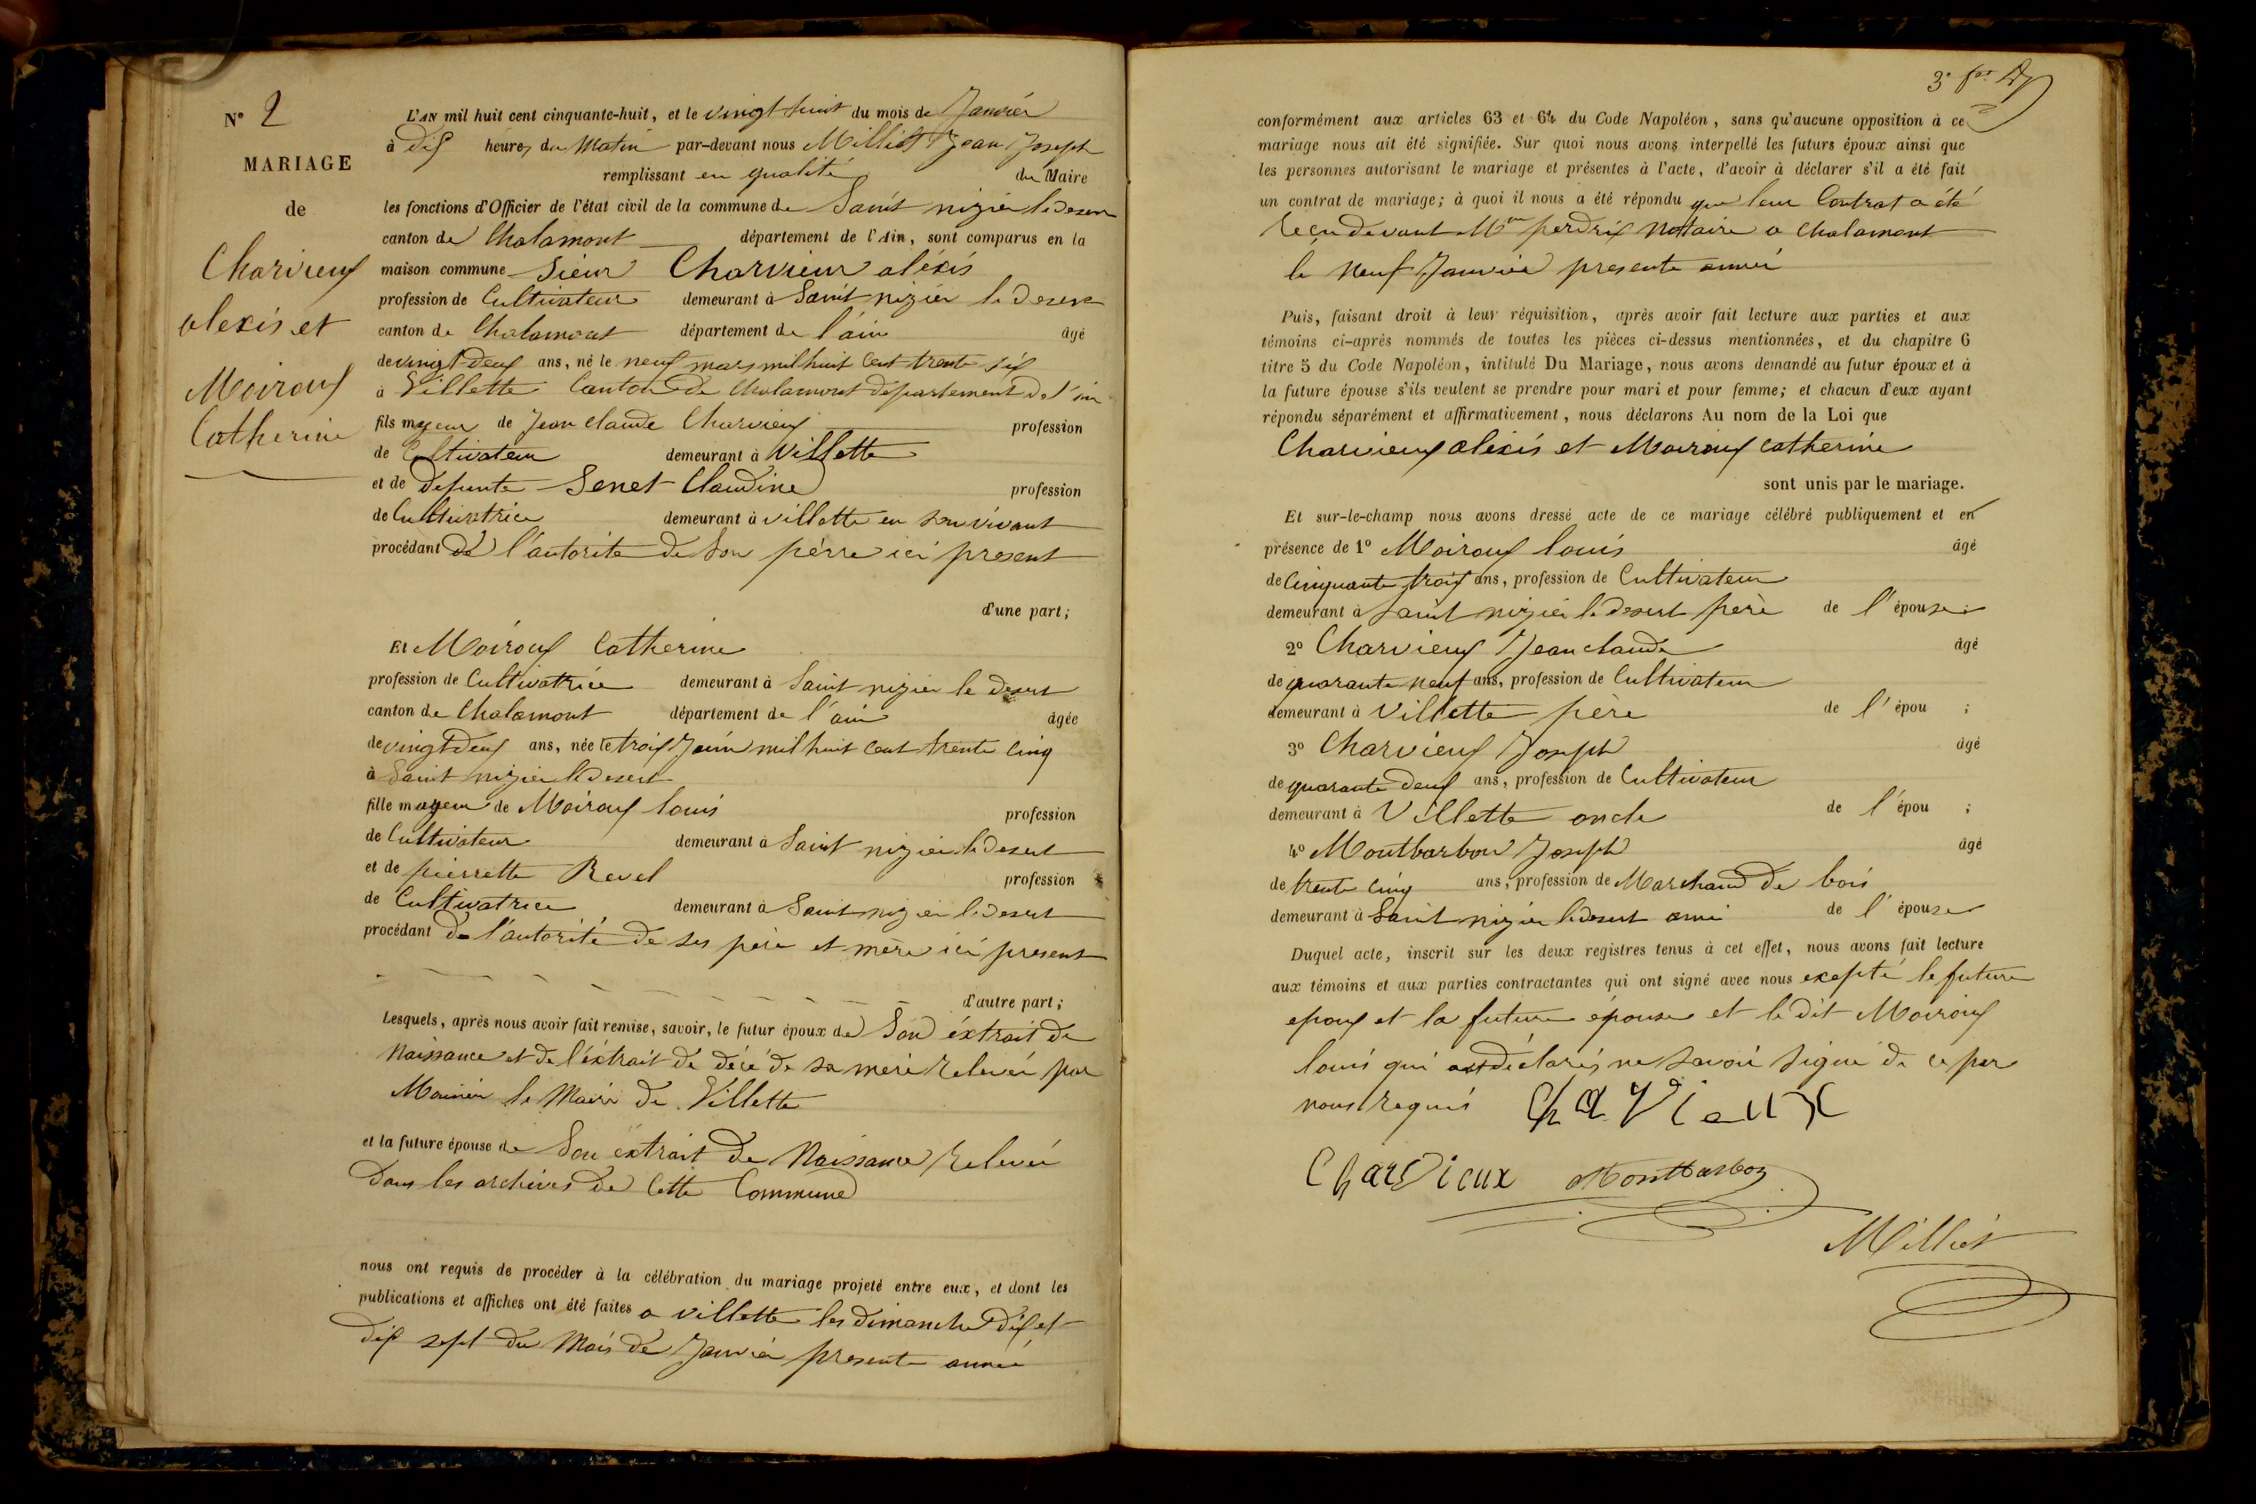 N° 2
MARIAGE
de
Charvieux
alexis et
Moiroux
Catherine
L'AN mil huit cent cinquante-huit, et le vingt huit du mois de Janvier
à dix heures du Matin par-devant nous Milliet Jean Joseph
remplissant en qualité du Maire
les fonctions d'Officier de l'état civil de la commune de Saint nizier le desert
canton de Chalamont département de l'Ain, sont comparus en la
maison commune Sieur Charvieux alexis
profession de Cultivateur demeurant à Saint nizier le desert
canton de Chalamont département de l'ain âgé
de vingt deux ans, né le neuf mars mil huit Cent trente six
à Villette Canton de Chalamont département de l'ain
fils majeur de Jean claude Charvieux profession
de Cultivateur demeurant à Villette
et de defunte Senet Claudine profession
de Cultivatrice demeurant à villette en son vivant
procédant de l'autorite de Son pérre ici present
d'une part;
Et Moiroux Catherine
profession de Cultivatrice demeurant à Saint nizier le desert
canton de Chalamont département de l'ain âgée
de vingt deux ans, née le trois Juin mil huit Cent trente cinq
à Saint nizier le desert
fille mageur de Moiroux louis profession
de Cultivateur demeurant à Saint nizier le desert
et de pierrette Revel profession
de Cultivatrice demeurant à Saint nizier le desert
procédant de l'autorité de ses père et mère ici present
d'autre part;
Lesquels, après nous avoir fait remise, savoir, le futur époux de Son éxtrait de
Naissance et de l'éxtrait de décé de sa mere relevéi par
le Maire de Villette
et la future épouse de Son extrait de Naissance relevéi
dans les archives de Cette Commune
nous ont requis de procéder à la célébration du mariage projeté entre eux, et dont les
publications et affiches ont été faites a villette les dimanche dix et
dix sept du Mois de Janvier presente année
3e
conformément aux articles 63 et 64 du Code Napoléon, sans qu'aucune opposition à ce
mariage nous ait été signifiée. Sur quoi nous avons interpellé les futurs époux ainsi que
les personnes autorisant le mariage et présentes à l'acte, d'avoir à déclarer s'il a été fait
un contrat de mariage; à quoi il nous a été répondu que leur Contrat a été
recu devant Me perdrix Notaire a Chalamont
le Neuf Janvier presente année
Puis, faisant droit à leur réquisition, après avoir fait lecture aux parties et aux
témoins ci-après nommés de toutes les pièces ci-dessus mentionnées, et du chapitre 6
titre 5 du Code Napoléon, intitulé Du Mariage, nous avons demandé au futur époux et à
la future épouse s'ils veulent se prendre pour mari et pour femme; et chacun d'eux ayant
répondu séparément et affirmativement, nous déclarons Au nom de la Loi que
Charvieux alexis et Moiroux catherine
sont unis par le mariage.
Et sur-le-champ nous avons dressé acte de ce mariage célébré publiquement et en
présence de 1° Moiroux louis âgé
de Cinquante trois ans, profession de Cultivateur
demeurant à Saint nizier le desert père de l'épouse;
2° Charvieux Jean claude âgé
de quarante neuf ans, profession de Cultivateur
demeurant à Villette père de l'épou ;
3° Charvieux Joseph âgé
de quarante deux ans, profession de Cultivateur
demeurant à Villette oncle de l'épou ;
4° Montbarbon Joseph âgé
de trente cinq ans, profession de Marchand de bois
demeurant à Saint nizier le desert ami de l'épouse
Duquel acte, inscrit sur les deux registres tenus à cet effet, nous avons fait lecture
aux témoins et aux parties contractantes qui ont signé avec nous exepté le future
epoux et la future épouse et le dit Moiroux
louis qui ont déclarés ne savoir signé de ce par
nous requis Chavieux
Charvieux Montbarbon
Milliet